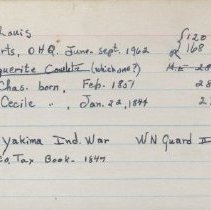 Louis
rts, O.H.Q. June-Sept. 1962 { 120 168
guerite Couble (which one?) 28
Chas. born, Feb. 1857 28
Cecile " , Jan. 22, 1844 2
Yakima Ind. War WN Guard II
Co. Tax Book - 1847